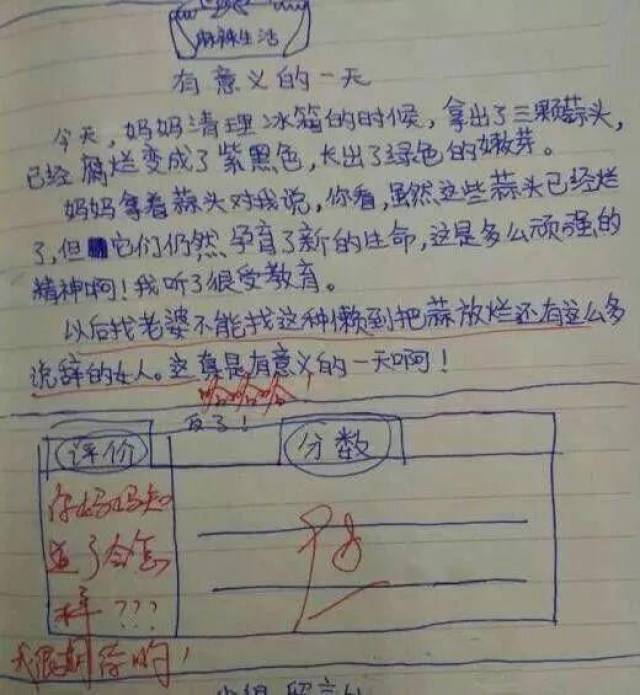 麻辣生活
有意义的一天
今天，妈妈清理冰箱的时候，拿出了三颗蒜头，
已经腐烂变成了紫黑色，长出了绿色的嫩芽。
妈妈拿着蒜头对我说，你看，虽然这些蒜头已经烂
了，但它们仍然孕育了新的生命，这是多么顽强的
精神啊！我听了很受教育。
以后找老婆不能找这种懒到把蒜放烂还有这么多
说辞的女人。这真是有意义的一天啊！
哈哈哈
反了！
评价
分数
你妈妈知
道了会怎
样？？？
我很期待哟！
98